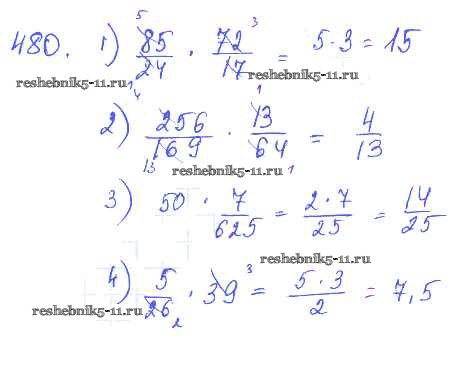 480. 1) 85/24 · 72/17 = 5·3 = 15
5 3 1 1
reshebnik5-11.ru reshebnik5-11.ru
2) 256/169 · 13/64 = 4/13
4 13 1
reshebnik5-11.ru
3) 50 · 7/625 = 2·7/25 = 14/25
reshebnik5-11.ru
4) 5/26 · 39 = 5·3/2 = 7,5
3 2
reshebnik5-11.ru